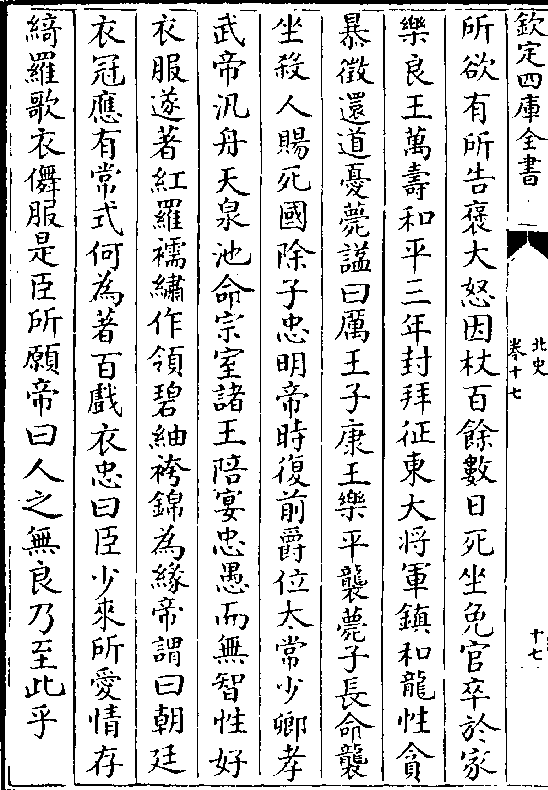 欽定四庫全書
北史
卷十七
十七
所欲有所告褒大怒因杖百餘數日死坐免官卒於家
樂良王萬壽和平三年封拜征東大將軍鎮和龍性貪
暴徵還道憂薨諡曰厲王子康王樂平襲薨子長命襲
坐殺人賜死國除子忠明帝時復前爵位太常少卿孝
武帝汎舟天泉池命宗室諸王陪宴忠愚而無智性好
衣服遂著紅羅襦繡作領碧紬袴錦為緣帝謂曰朝廷
衣冠應有常式何為著百戲衣忠曰臣少來所愛情存
綺羅歌衣儛服是臣所願帝曰人之無良乃至此乎